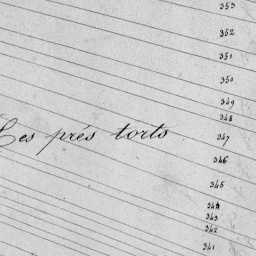 353
352
351
350
349
348
Les prés torts
347
346
345
344
343
342
341